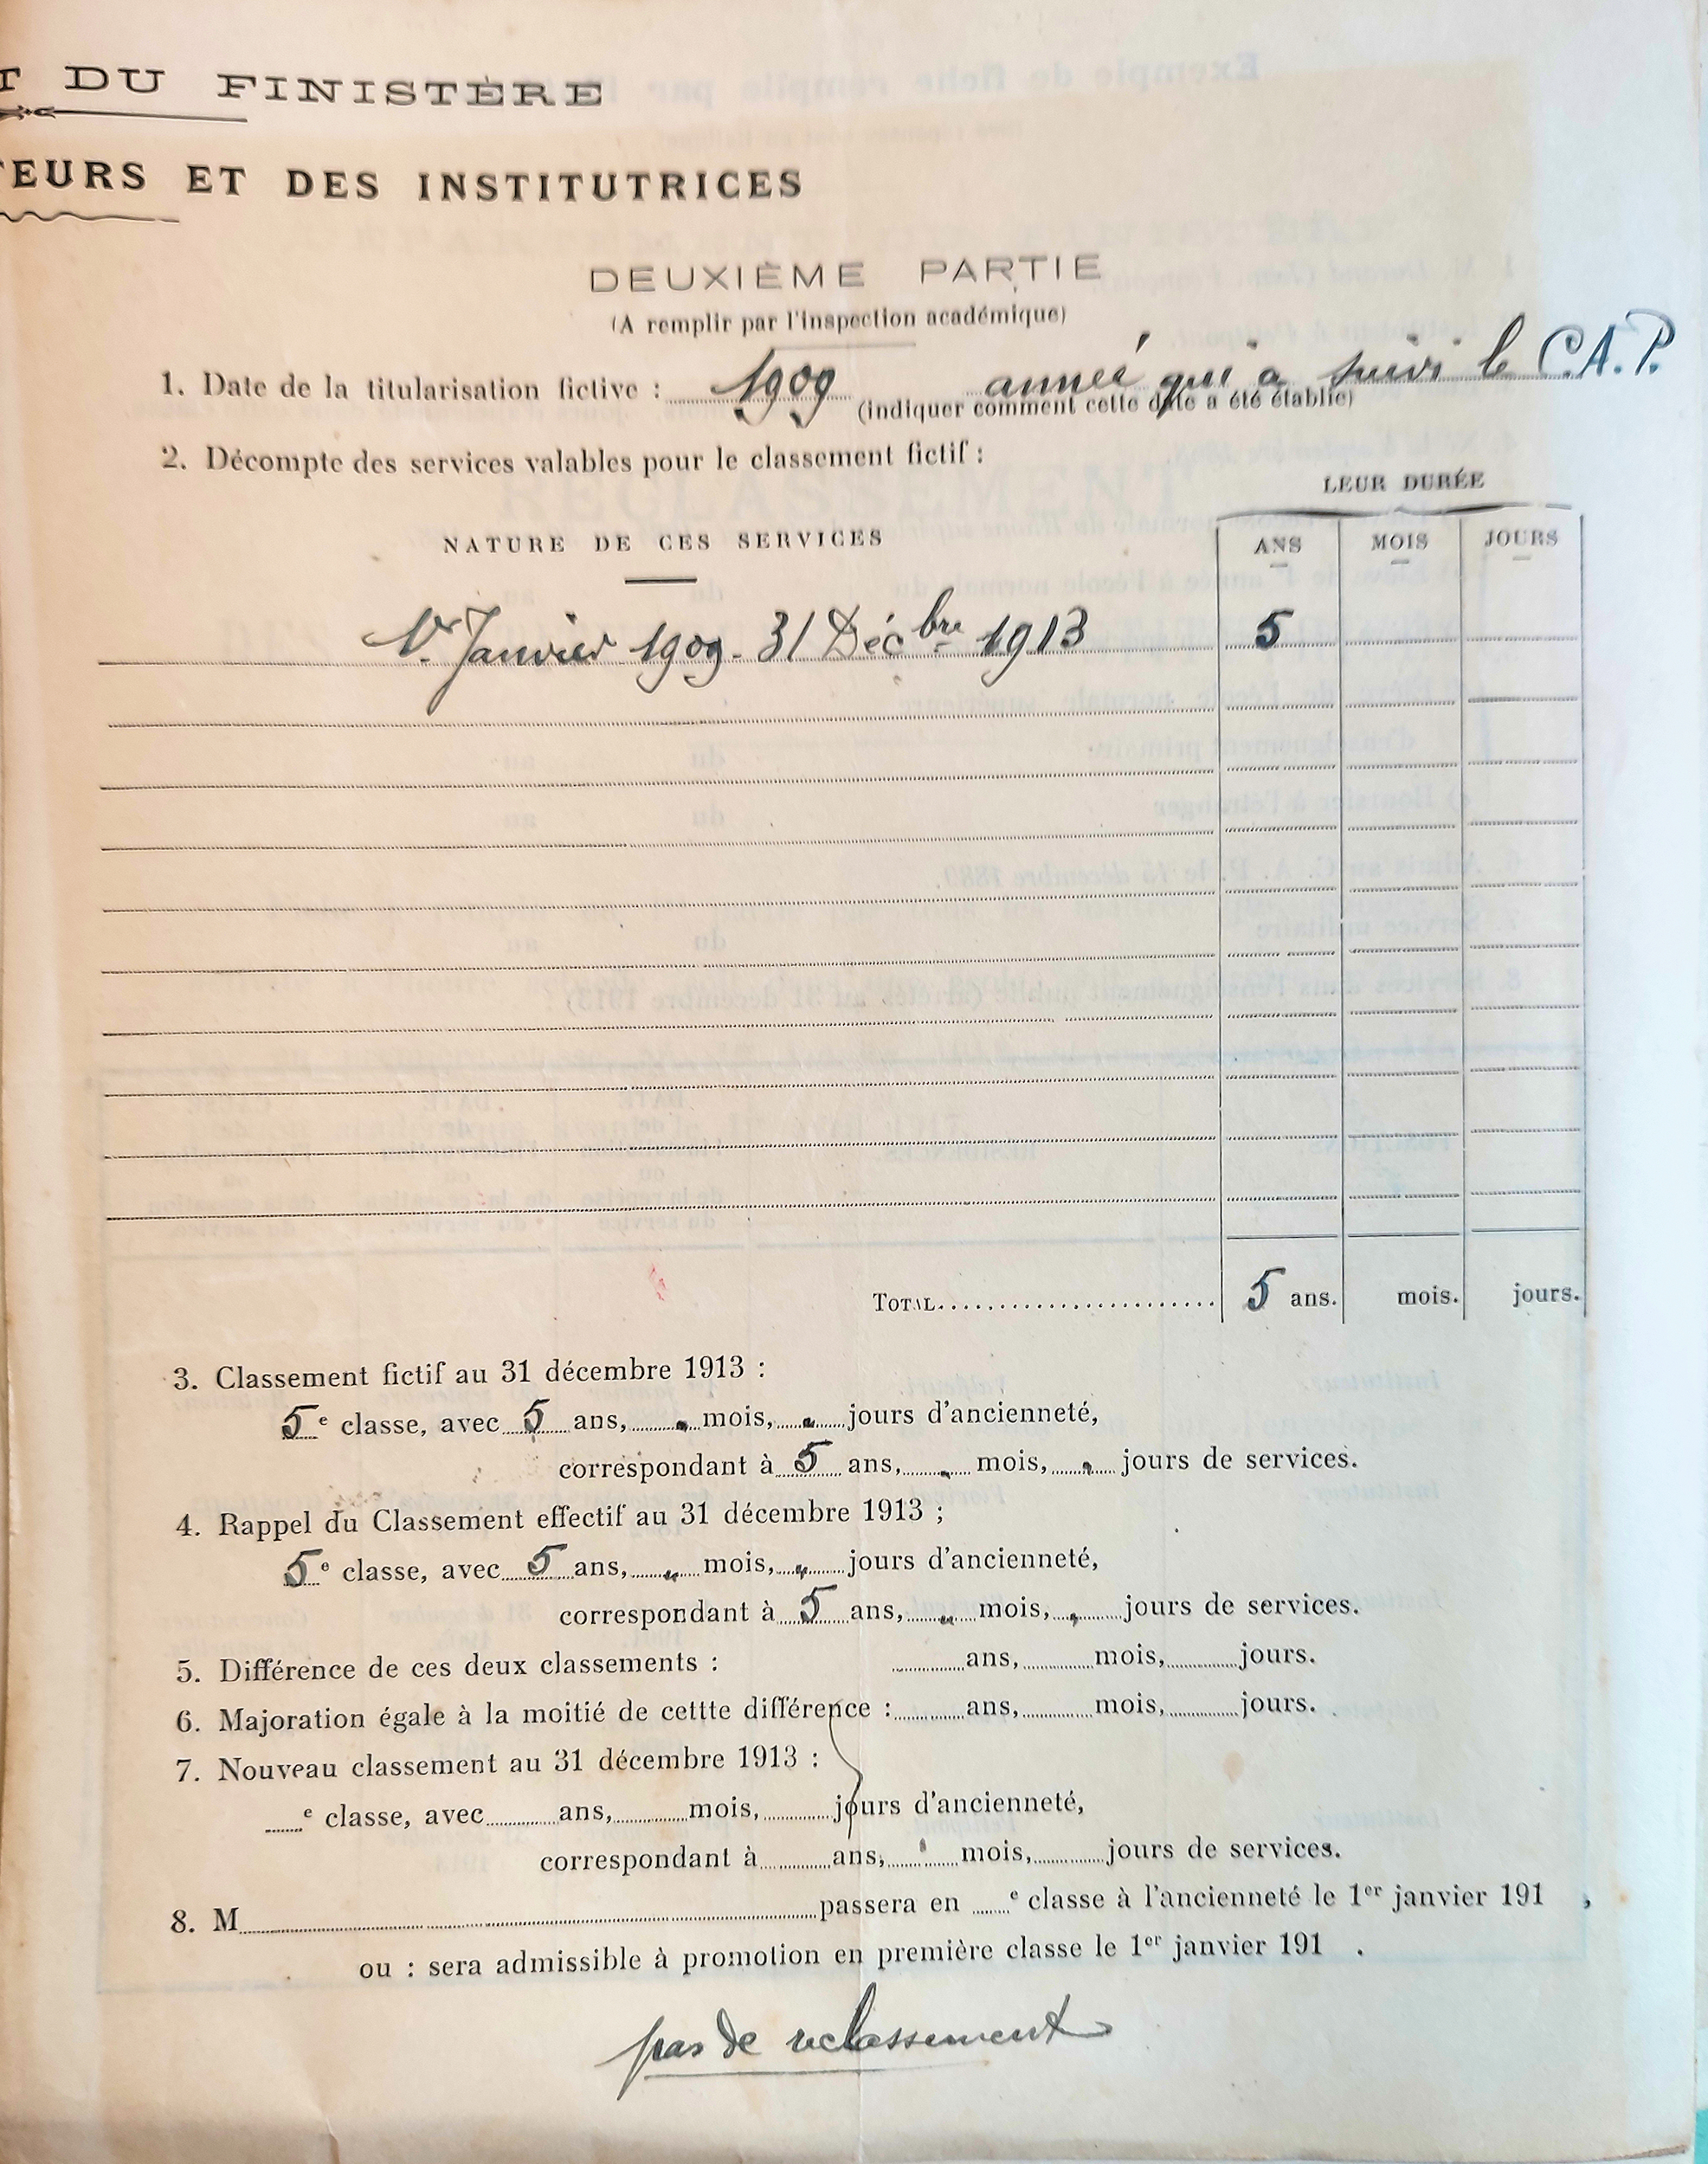 T DU FINISTÈRE
TEURS ET DES INSTITUTRICES
DEUXIÈME PARTIE
(A remplir par l'inspection académique)
1. Date de la titularisation fictive : 1909 année qui a suivi le C.A.P.
(indiquer comment cette date a été établie)
2. Décompte des services valables pour le classement fictif :
LEUR DURÉE
NATURE DE CES SERVICES ANS MOIS JOURS
1er Janvier 1909 - 31 Décbre 1913 5
TOTAL 5 ans. mois. jours.
3. Classement fictif au 31 décembre 1913 :
5e classe, avec 5 ans, " mois, " jours d'ancienneté,
correspondant à 5 ans, " mois, " jours de services.
4. Rappel du Classement effectif au 31 décembre 1913 ;
5e classe, avec 5 ans, " mois, " jours d'ancienneté,
correspondant à 5 ans, " mois, " jours de services.
5. Différence de ces deux classements : ans, mois, jours.
6. Majoration égale à la moitié de cettte différence : ans, mois, jours.
7. Nouveau classement au 31 décembre 1913 :
e classe, avec ans, mois, jours d'ancienneté,
correspondant à ans, mois, jours de services.
8. M passera en e classe à l'ancienneté le 1er janvier 191 ,
ou : sera admissible à promotion en première classe le 1er janvier 191 .
pas de reclassement